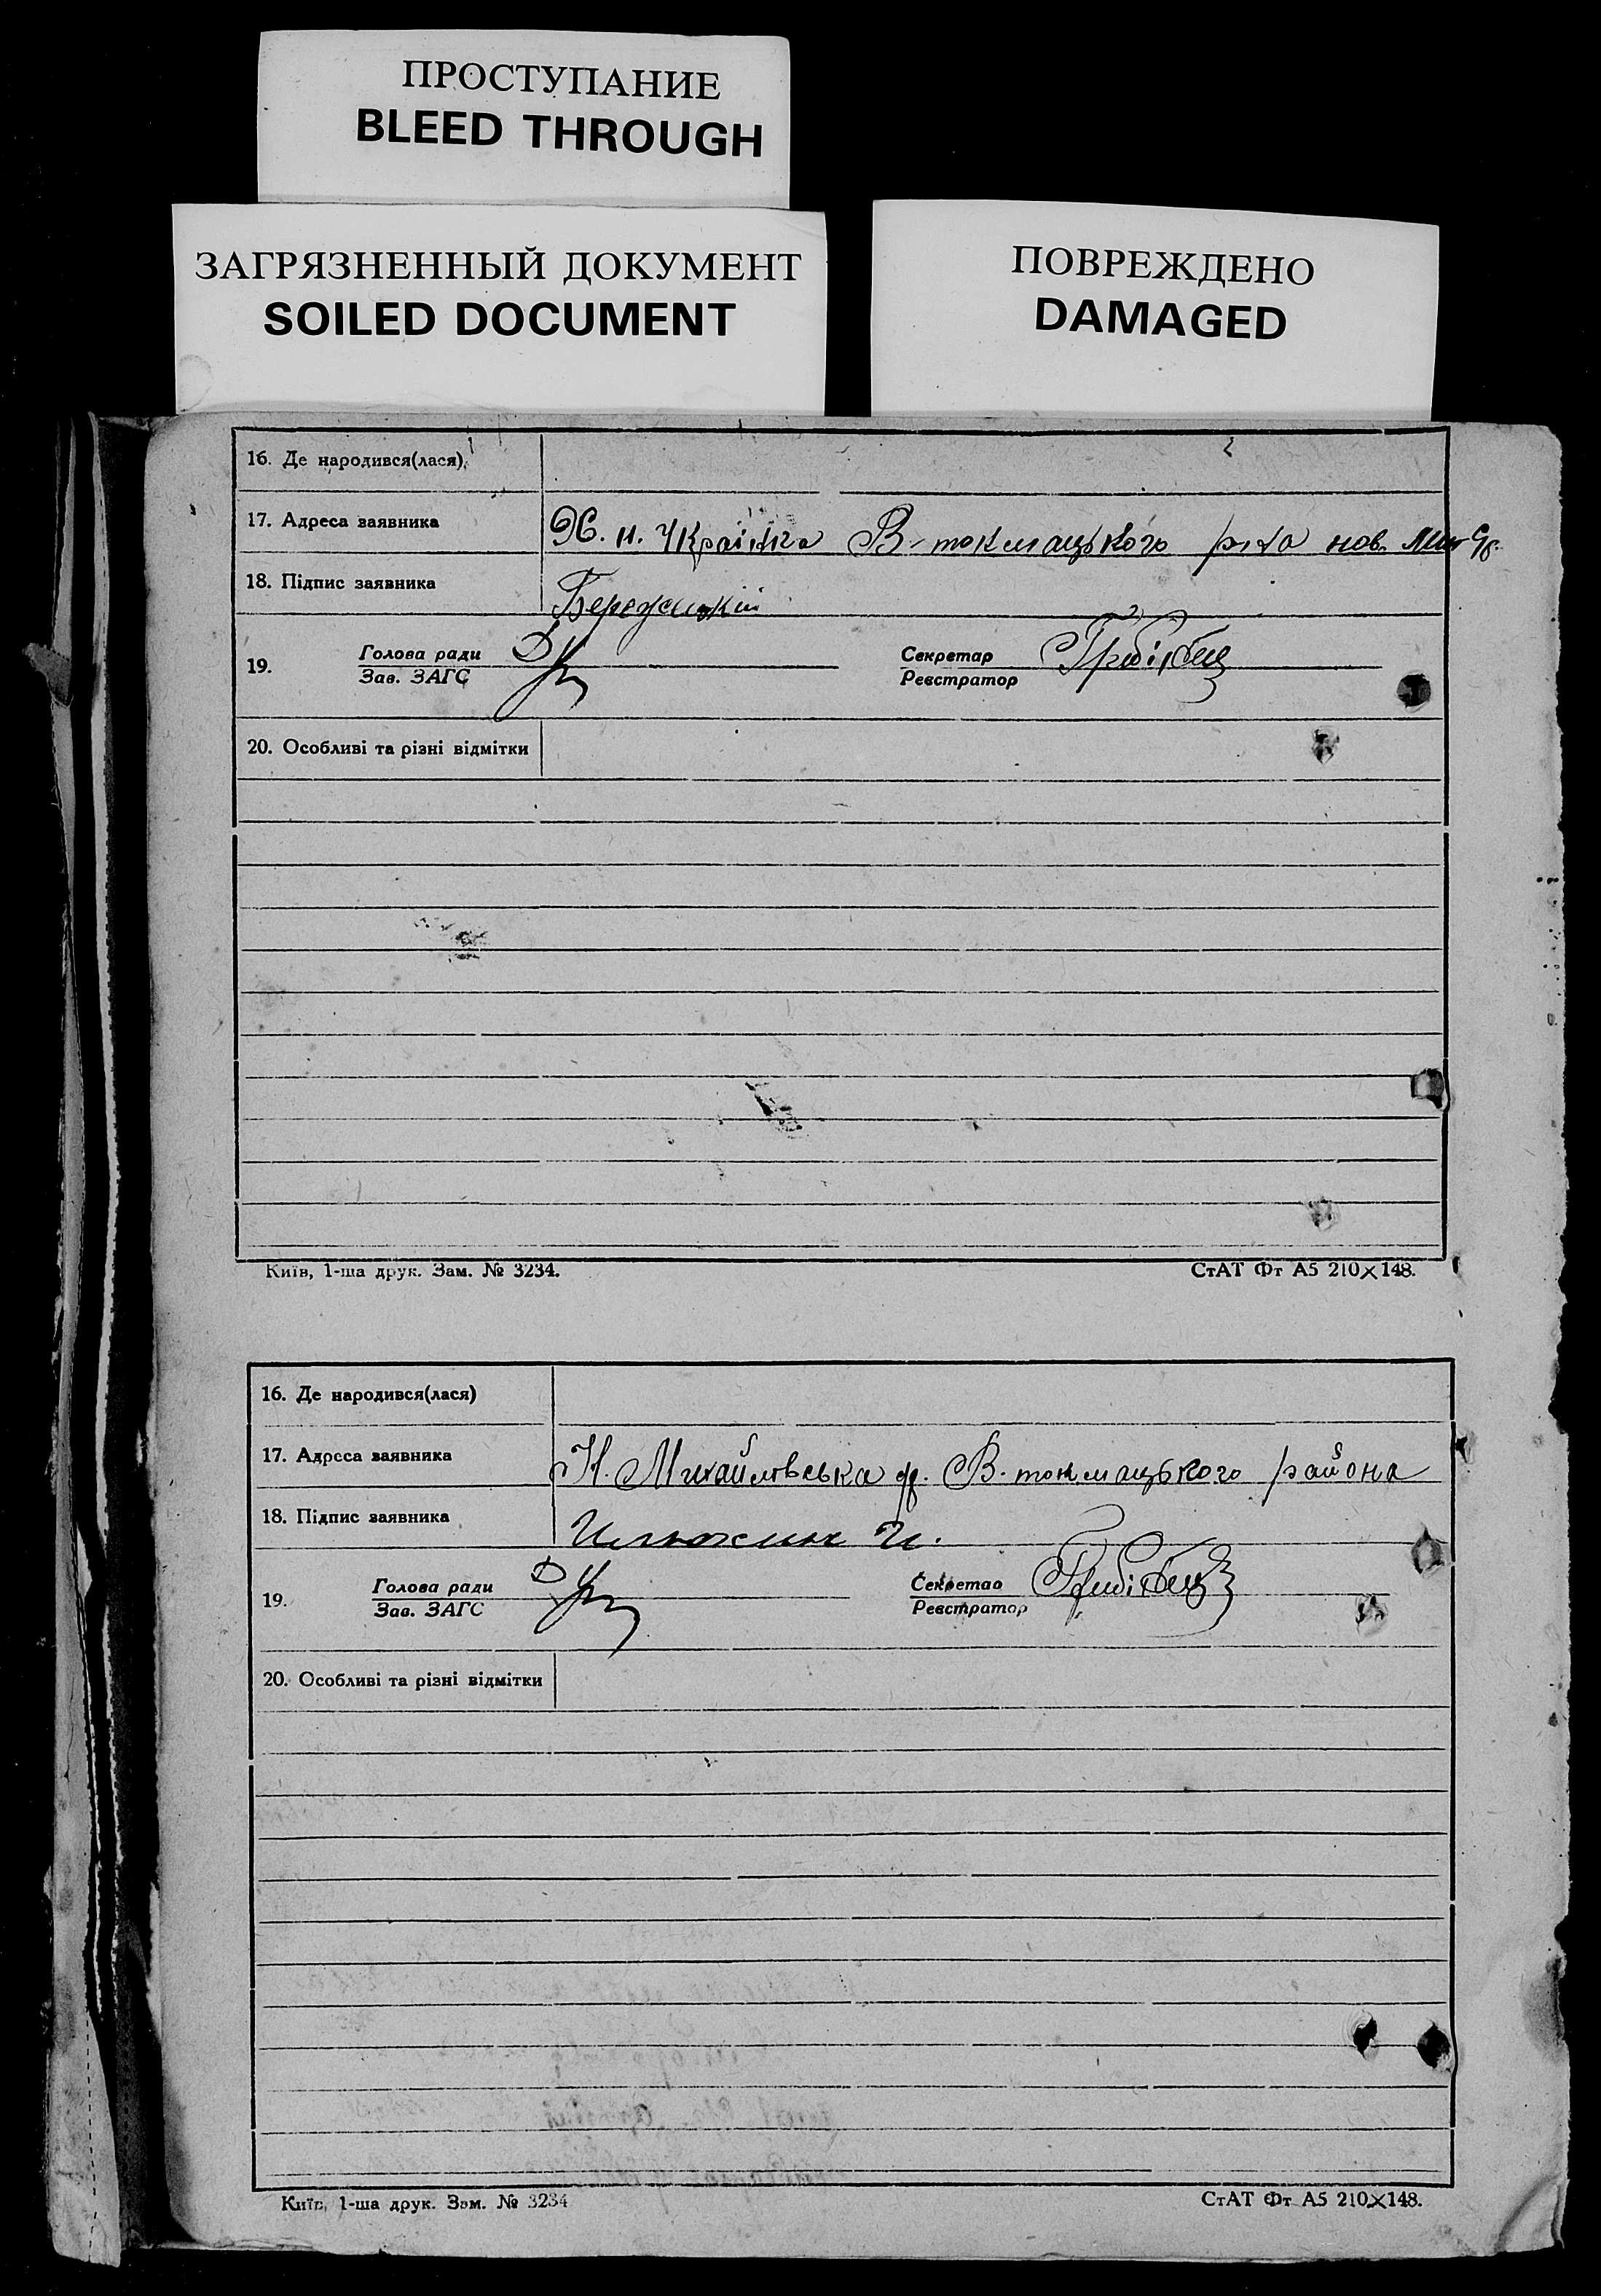 ПРОСТУПАНИЕ
BLEED THROUGH
ЗАГРЯЗНЕННЫЙ ДОКУМЕНТ
SOILED DOCUMENT
ПОВРЕЖДЕНО
DAMAGED
16. Де народився(лася)
17. Адреса заявника Х. н. Українка В-токмацького р-на нов.
18. Підпис заявника
19. Голова ради Секретар
Зав. ЗАГС Реєстратор
20. Особливі та різні відмітки
Київ, 1-ша друк. Зам. № 3234. СтАТ Фт А5 210×148.
16. Де народився(лася)
17. Адреса заявника Н. Михайлівська В. токмацького района
18. Підпис заявника Илюхин И.
19. Голова ради Секретар
Зав. ЗАГС Реєстратор
20. Особливі та різні відмітки
Київ, 1-ша друк. Зам. № 3234 СтАТ Фт А5 210×148.